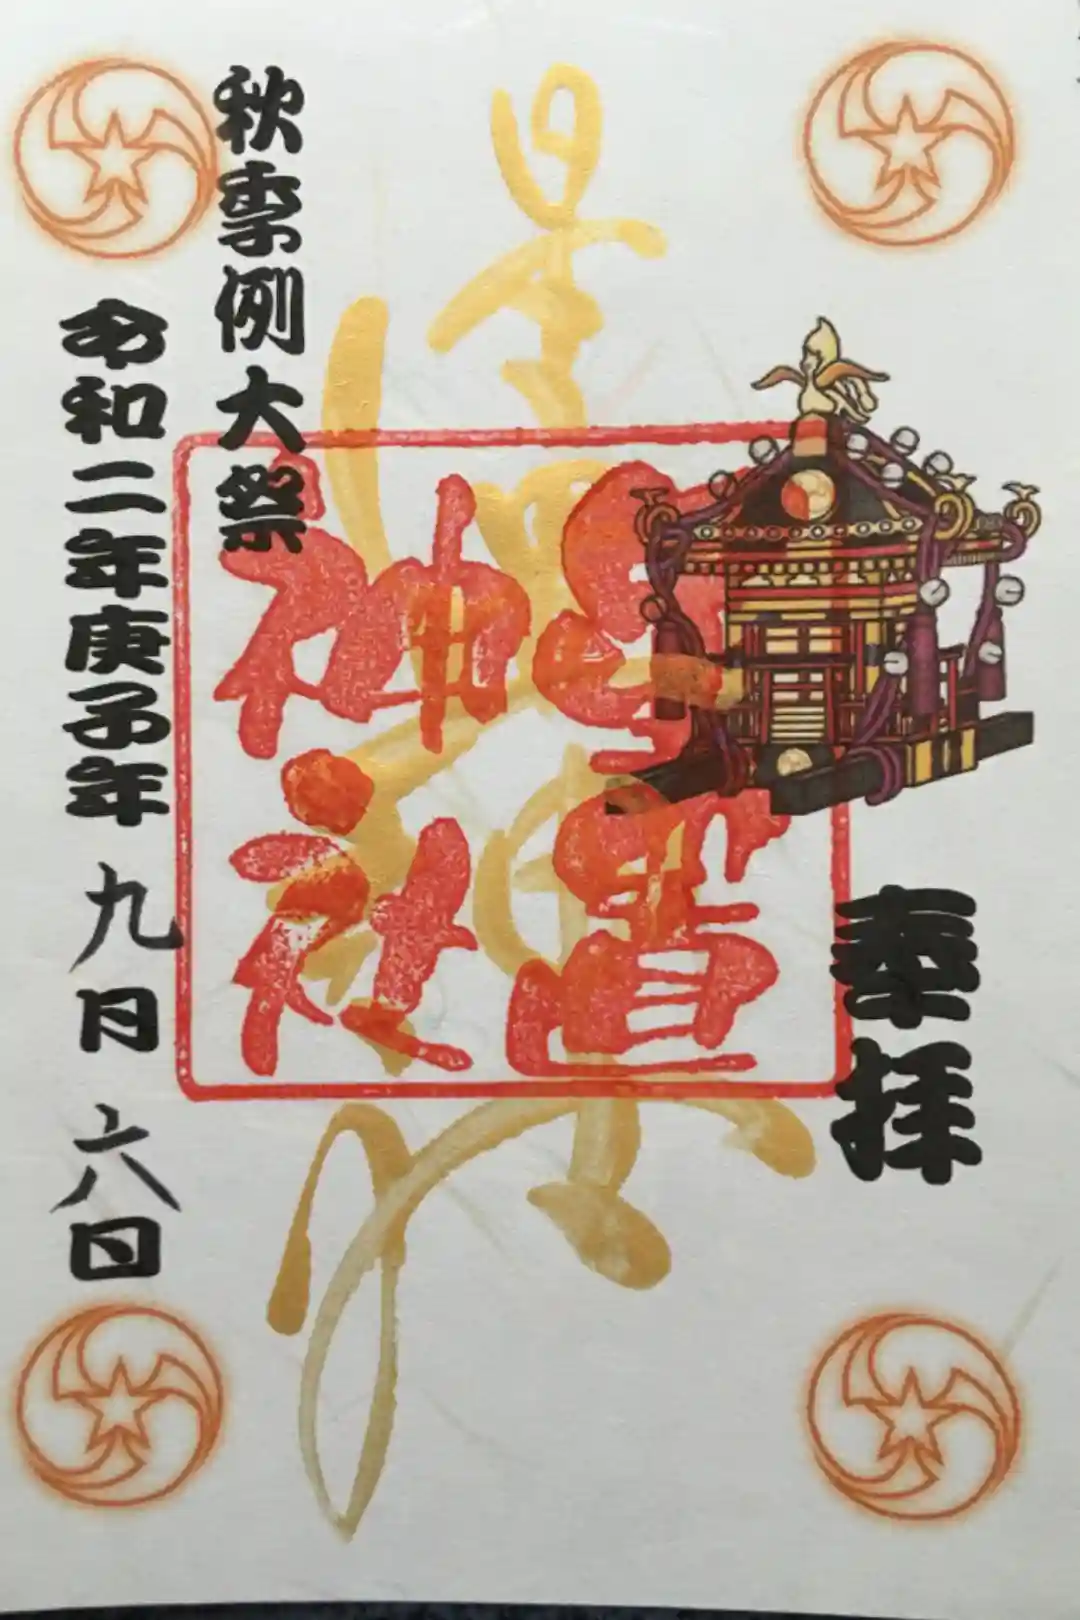 奉拝
星置
神社
秋季例大祭
令和二年庚子年九月六日